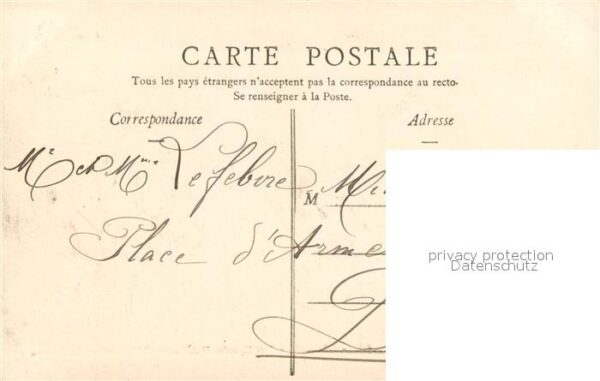 CARTE POSTALE
Tous les pays étrangers n'acceptent pas la correspondance au recto-
Se renseigner à la Poste.
Correspondance
Adresse
Mr et Mme Lefebvre
M
Place d'Arme
privacy protection
Datenschutz